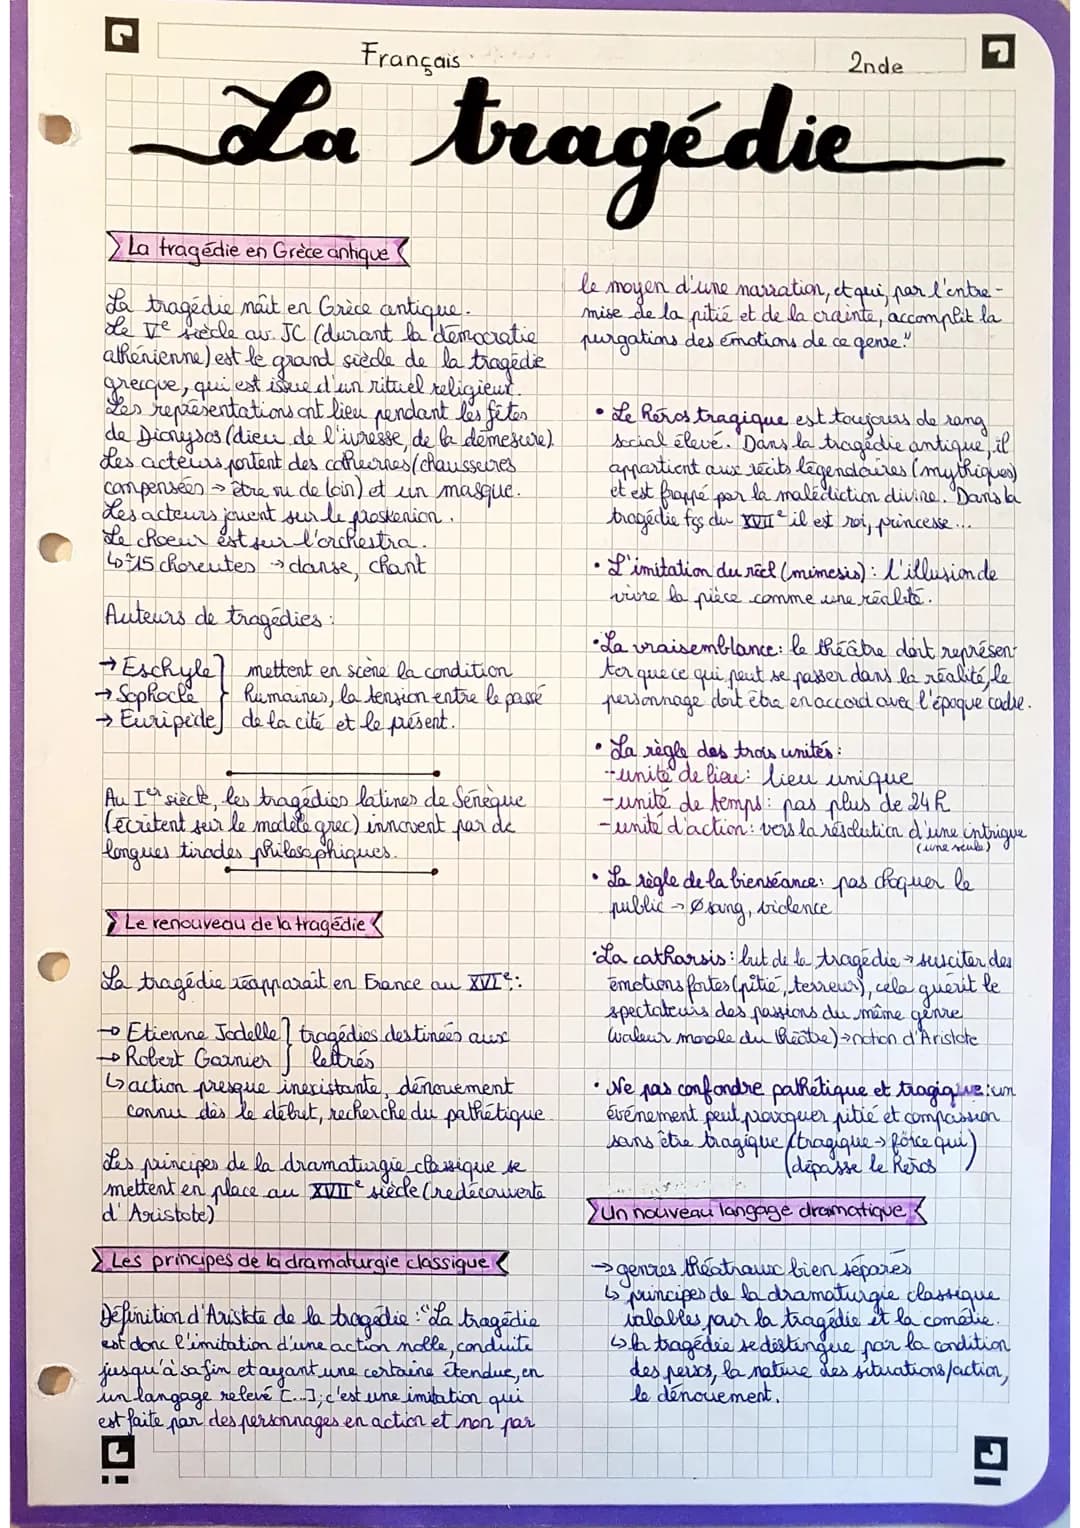 Français
2nde
La tragédie
La tragédie en Grèce antique
La tragédie naît en Grèce antique.
Le Ve siècle av. JC (durant la démocratie
athénienne) est le grand siècle de la tragédie
grecque, qui est issue d'un rituel religieux.
Les représentations ont lieu pendant les fêtes
de Dionysos (dieu de l'ivresse, de la démesure)
Les acteurs portent des cothurnes (chaussures
compensées → être vu de loin) et un masque.
Les acteurs jouent sur le proskenion.
Le choeur est sur l'orchestra.
↳ 15 choreutes → danse, chant
Auteurs de tragédies :
→ Eschyle
→ Sophocle
→ Euripide
mettent en scène la condition
humaines, la tension entre le passé
de la cité et le présent.
Au Ier siècle, les tragédies latines de Sénèque
(écritent sur le modèle grec) innovent par de
longues tirades philosophiques.
Le renouveau de la tragédie
La tragédie réapparaît en France au XVIe :
→ Etienne Jodelle
→ Robert Garnier
tragédies destinées aux
lettrés
↳ action presque inexistante, dénouement
connu dès le début, recherche du pathétique
Les principes de la dramaturgie classique se
mettent en place au XVIIe siècle (redécouverte
d'Aristote)
Les principes de la dramaturgie classique
Définition d'Aristote de la tragédie : "La tragédie
est donc l'imitation d'une action noble, conduite
jusqu'à sa fin et ayant une certaine étendue, en
un langage relevé [...], c'est une imitation qui
est faite par des personnages en action et non par
le moyen d'une narration, et qui, par l'entre-
mise de la pitié et de la crainte, accomplit la
purgations des émotions de ce genre."
• Le héros tragique est toujours de rang
social élevé. Dans la tragédie antique, il
appartient aux récits légendaires (mythiques)
et est frappé par la malédiction divine. Dans la
tragédie fçs du XVIIe il est roi, princesse...
• L'imitation du réel (mimesis) : l'illusion de
vivre la pièce comme une réalité.
• La vraisemblance : le théâtre doit représen-
ter que ce qui peut se passer dans la réalité, le
personnage doit être en accord avec l'époque cadre.
• La règle des trois unités :
- unité de lieu : lieu unique
- unité de temps : pas plus de 24h
- unité d'action : vers la résolution d'une intrigue
(une seule)
• La règle de la bienséance : pas choquer le
public → Ø sang, violence
• La catharsis : but de la tragédie → susciter des
émotions fortes (pitié, terreur), cela guérit le
spectateurs des passions du même genre
(valeur morale du théâtre) → notion d'Aristote
• Ne pas confondre pathétique et tragique : un
événement peut provoquer pitié et compassion
sans être tragique (tragique → force qui
dépasse le héros)
Un nouveau langage dramatique
→ genres théatraux bien séparés
↳ principes de la dramaturgie classique
valables pour la tragédie et la comédie.
↳ la tragédie se distingue par la condition
des persos, la nature des situations/action,
le dénouement.